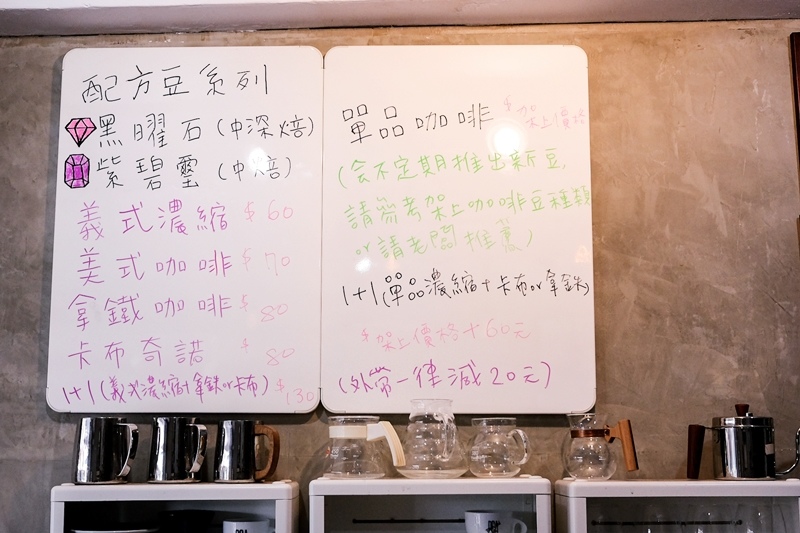 配方豆系列
黑曜石(中深焙)
紫碧璽(中焙)
義式濃縮 $60
美式咖啡 $70
拿鐵咖啡 $80
卡布奇諾 $80
1+1(義式濃縮+拿鉄or卡布) $130
單品咖啡 $架上價格
(会不定期推出新豆,
請參考架上咖啡豆種類
or請老闆推薦)
1+1(單品濃縮+卡布or拿鉄)
$架上價格+60元
(外帶一律減20元)